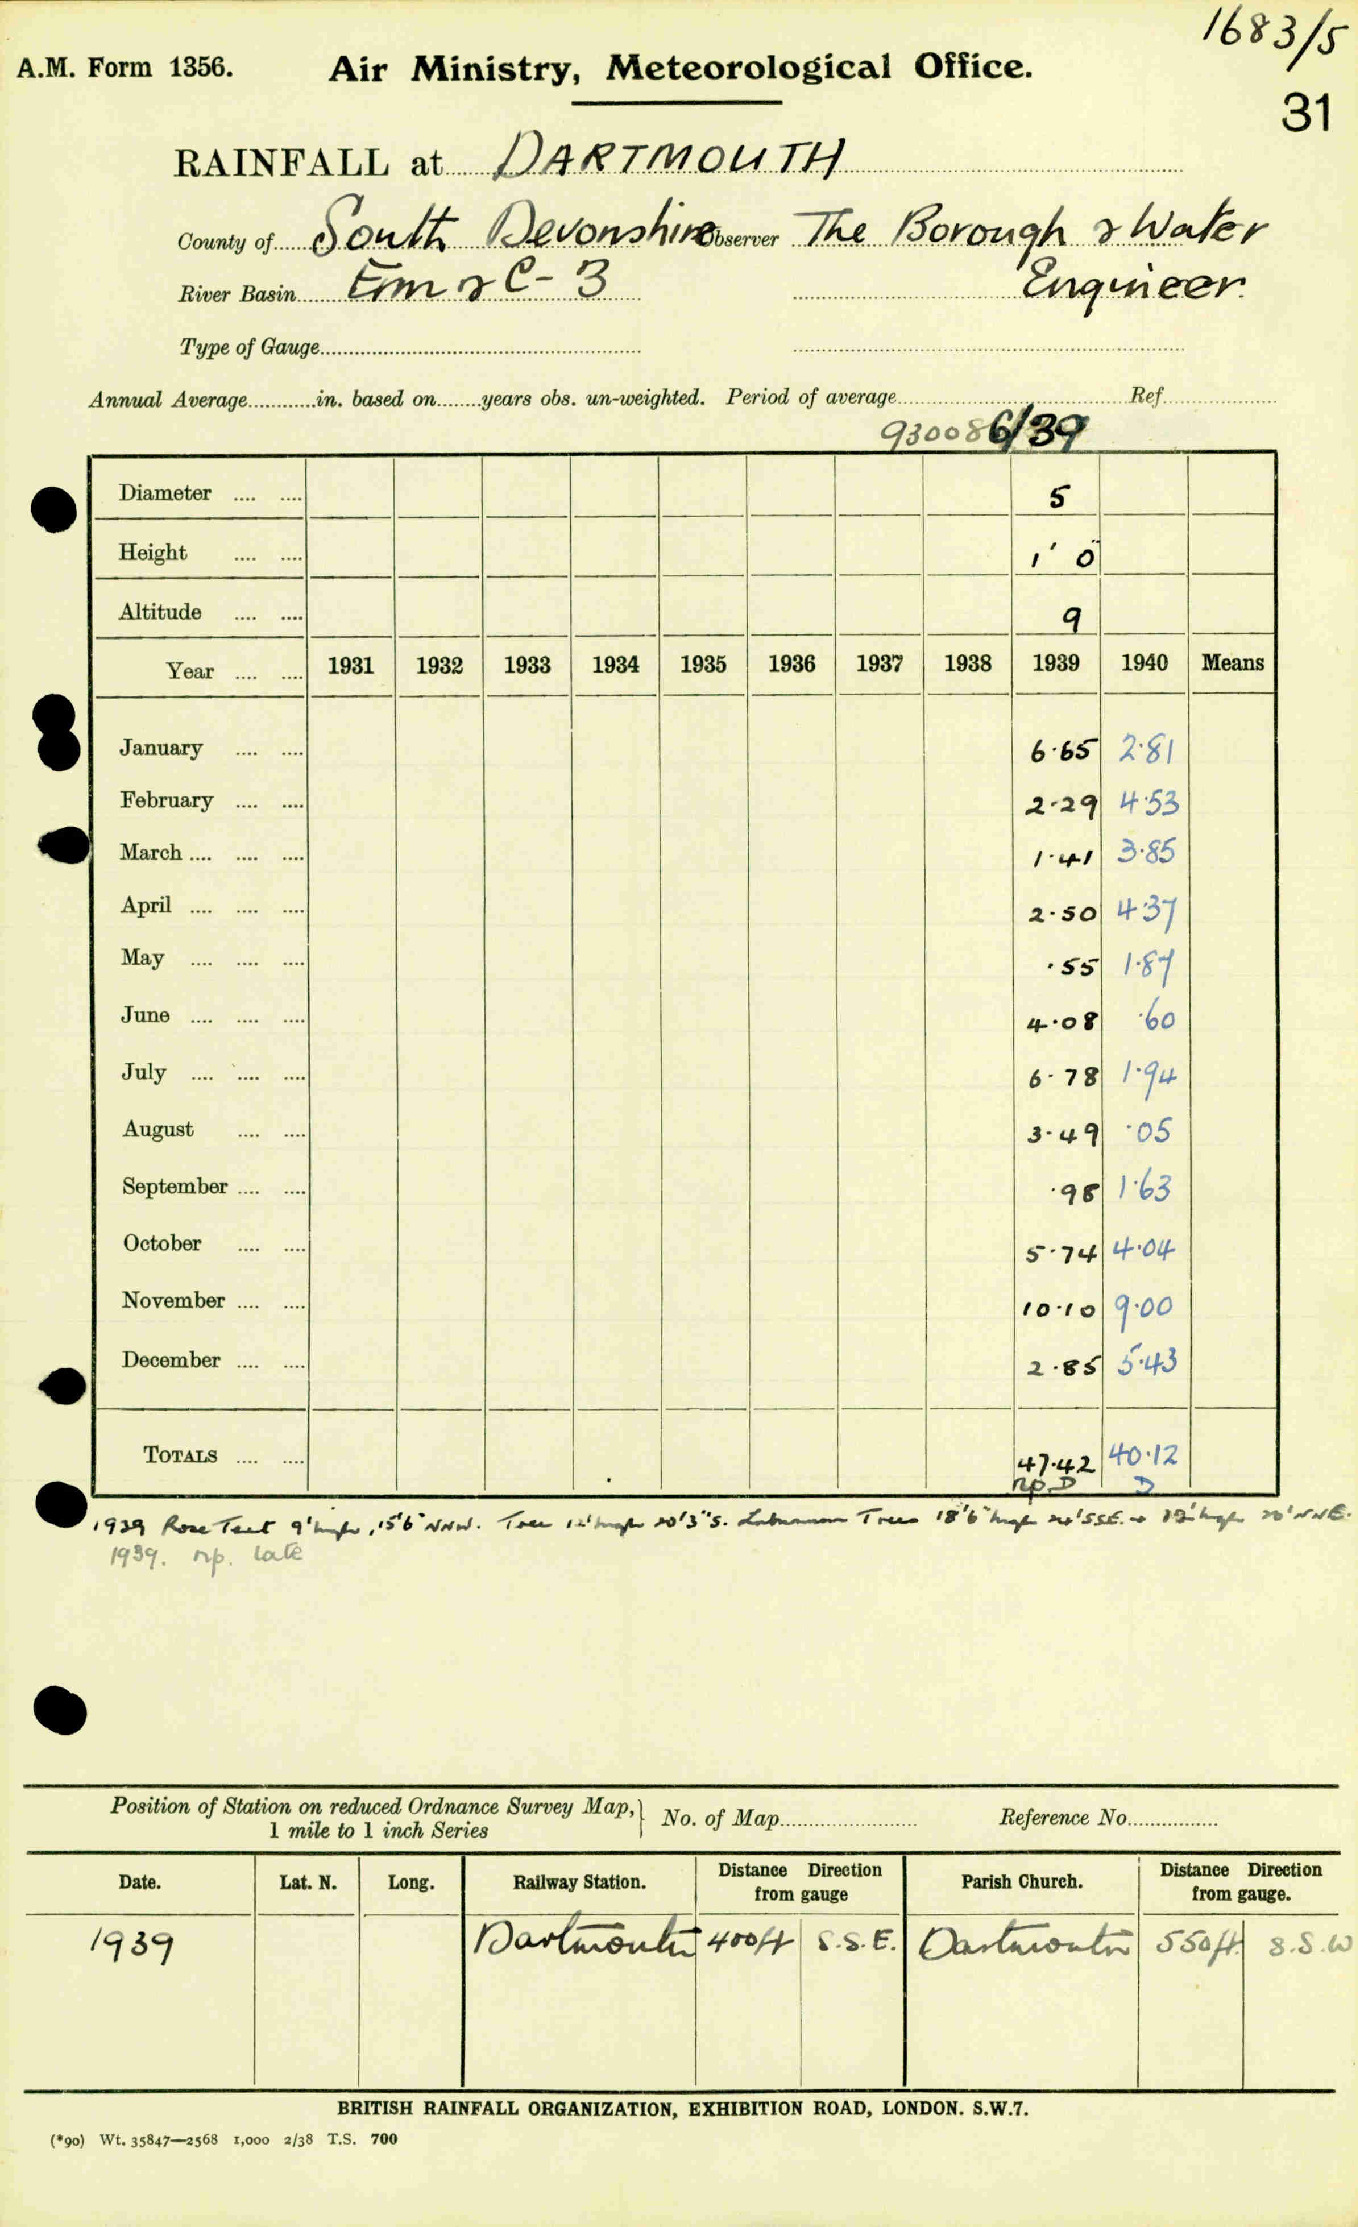 1683/5
A.M. Form 1356. Air Ministry, Meteorological Office.
31
RAINFALL at DARTMOUTH
County of South Devonshire Observer The Borough & Water
River Basin Erm & C - 3 Engineer.
Type of Gauge
Annual Average in. based on years obs. un-weighted. Period of average Ref.
930086/39
Diameter 5
Height 1' 0"
Altitude 9
Year 1931 1932 1933 1934 1935 1936 1937 1938 1939 1940 Means
January 6.65 2.81
February 2.29 4.53
March 1.41 3.85
April 2.50 4.37
May .55 1.87
June 4.08 .60
July 6.78 1.94
August 3.49 .05
September .98 1.63
October 5.74 4.04
November 10.10 9.00
December 2.85 5.43
TOTALS 47.42 40.12
np D D
1939 Rose 9' high, 15'6" NNW. Tree 12' high 20'3" S. Laburnum Trees 18'6" high 24' SSE. & 12' high 20' NNE.
1939. np. late
Position of Station on reduced Ordnance Survey Map, No. of Map Reference No.
1 mile to 1 inch Series
Date. Lat. N. Long. Railway Station. Distance Direction from gauge Parish Church. Distance Direction from gauge.
1939 Dartmouth 400ft S.S.E. Dartmouth 550ft. S.S.W
BRITISH RAINFALL ORGANIZATION, EXHIBITION ROAD, LONDON. S.W.7.
(*90) Wt. 35847—2568 1,000 2/38 T.S. 700